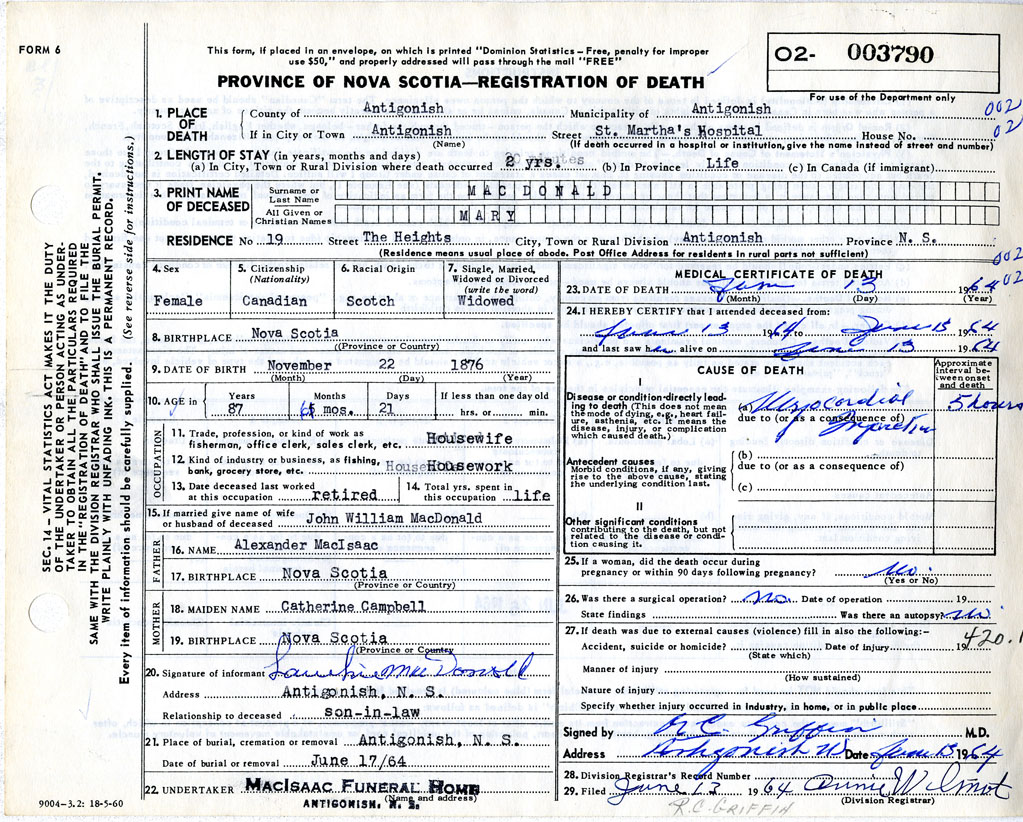 FORM 6
This form, if placed in an envelope, on which is printed "Dominion Statistics – Free, penalty for improper
use $50," and properly addressed will pass through the mail "FREE"
PROVINCE OF NOVA SCOTIA—REGISTRATION OF DEATH
O2- 003790
For use of the Department only
SEC. 14 – VITAL STATISTICS ACT MAKES IT THE DUTY
OF THE UNDERTAKER OR PERSON ACTING AS UNDER-
TAKER TO OBTAIN ALL THE PARTICULARS REQUIRED
IN THE "REGISTRATION OF DEATH" AND TO FILE THE
SAME WITH THE DIVISION REGISTRAR WHO SHALL ISSUE THE BURIAL PERMIT.
WRITE PLAINLY WITH UNFADING INK. THIS IS A PERMANENT RECORD.
Every item of information should be carefully supplied. (See reverse side for instructions.)
1. PLACE OF DEATH
County of Antigonish Municipality of Antigonish 002
If in City or Town Antigonish Street St. Martha's Hospital House No. 02
(Name) (If death occurred in a hospital or institution, give the name instead of street and number)
2. LENGTH OF STAY (in years, months and days)
(a) In City, Town or Rural Division where death occurred 2 yrs. (b) In Province Life (c) In Canada (if immigrant)
3. PRINT NAME OF DECEASED
Surname or Last Name MAC DONALD
All Given or Christian Names MARY
RESIDENCE No 19 Street The Heights City, Town or Rural Division Antigonish Province N. S.
(Residence means usual place of abode. Post Office Address for residents in rural parts not sufficient) 002
02
4. Sex
Female
5. Citizenship (Nationality)
Canadian
6. Racial Origin
Scotch
7. Single, Married, Widowed or Divorced (write the word)
Widowed
8. BIRTHPLACE Nova Scotia
(Province or Country)
9. DATE OF BIRTH November 22 1876
(Month) (Day) (Year)
10. AGE in Years Months Days If less than one day old
87 mos. 21 hrs. or min.
OCCUPATION
11. Trade, profession, or kind of work as
fisherman, office clerk, sales clerk, etc. Housewife
12. Kind of industry or business, as fishing,
bank, grocery store, etc. Housework
13. Date deceased last worked
at this occupation retired
14. Total yrs. spent in
this occupation life
15. If married give name of wife
or husband of deceased John William MacDonald
FATHER
16. NAME Alexander MacIsaac
17. BIRTHPLACE Nova Scotia
(Province or Country)
MOTHER
18. MAIDEN NAME Catherine Campbell
19. BIRTHPLACE Nova Scotia
(Province or Country)
20. Signature of informant MacDonald
Address Antigonish, N. S.
Relationship to deceased son-in-law
21. Place of burial, cremation or removal Antigonish, N. S.
Date of burial or removal June 17/64
22. UNDERTAKER MACISAAC FUNERAL HOME
(Name and address)
ANTIGONISH, N. S.
9004–3.2: 18-5-60
MEDICAL CERTIFICATE OF DEATH
23. DATE OF DEATH June 13 1964
(Month) (Day) (Year)
24. I HEREBY CERTIFY that I attended deceased from:
June 13 1964 to June 13 1964
and last saw her alive on June 13 1964
CAUSE OF DEATH
Approximate interval between onset and death
I
Disease or condition directly lead-
ing to death (This does not mean
the mode of dying, e.g., heart fail-
ure, asthenia, etc. It means the
disease, injury, or complication
which caused death.)
(a) Myocardial 5 hours
due to (or as a consequence of) Infarction
Antecedent causes
Morbid conditions, if any, giving
rise to the above cause, stating
the underlying condition last.
(b)
due to (or as a consequence of)
(c)
II
Other significant conditions
contributing to the death, but not
related to the disease or condi-
tion causing it.
25. If a woman, did the death occur during
pregnancy or within 90 days following pregnancy? No.
(Yes or No)
26. Was there a surgical operation? No. Date of operation 19
State findings Was there an autopsy? No.
27. If death was due to external causes (violence) fill in also the following:–
Accident, suicide or homicide? Date of injury 19 420.1
(State which)
Manner of injury
(How sustained)
Nature of injury
Specify whether injury occurred in industry, in home, or in public place
Signed by R C Griffin M.D.
Address Antigonish NS Date June 13 1964
28. Division Registrar's Record Number
29. Filed June 13 1964 Annie Wilmot
(Division Registrar)
R.C. GRIFFIN